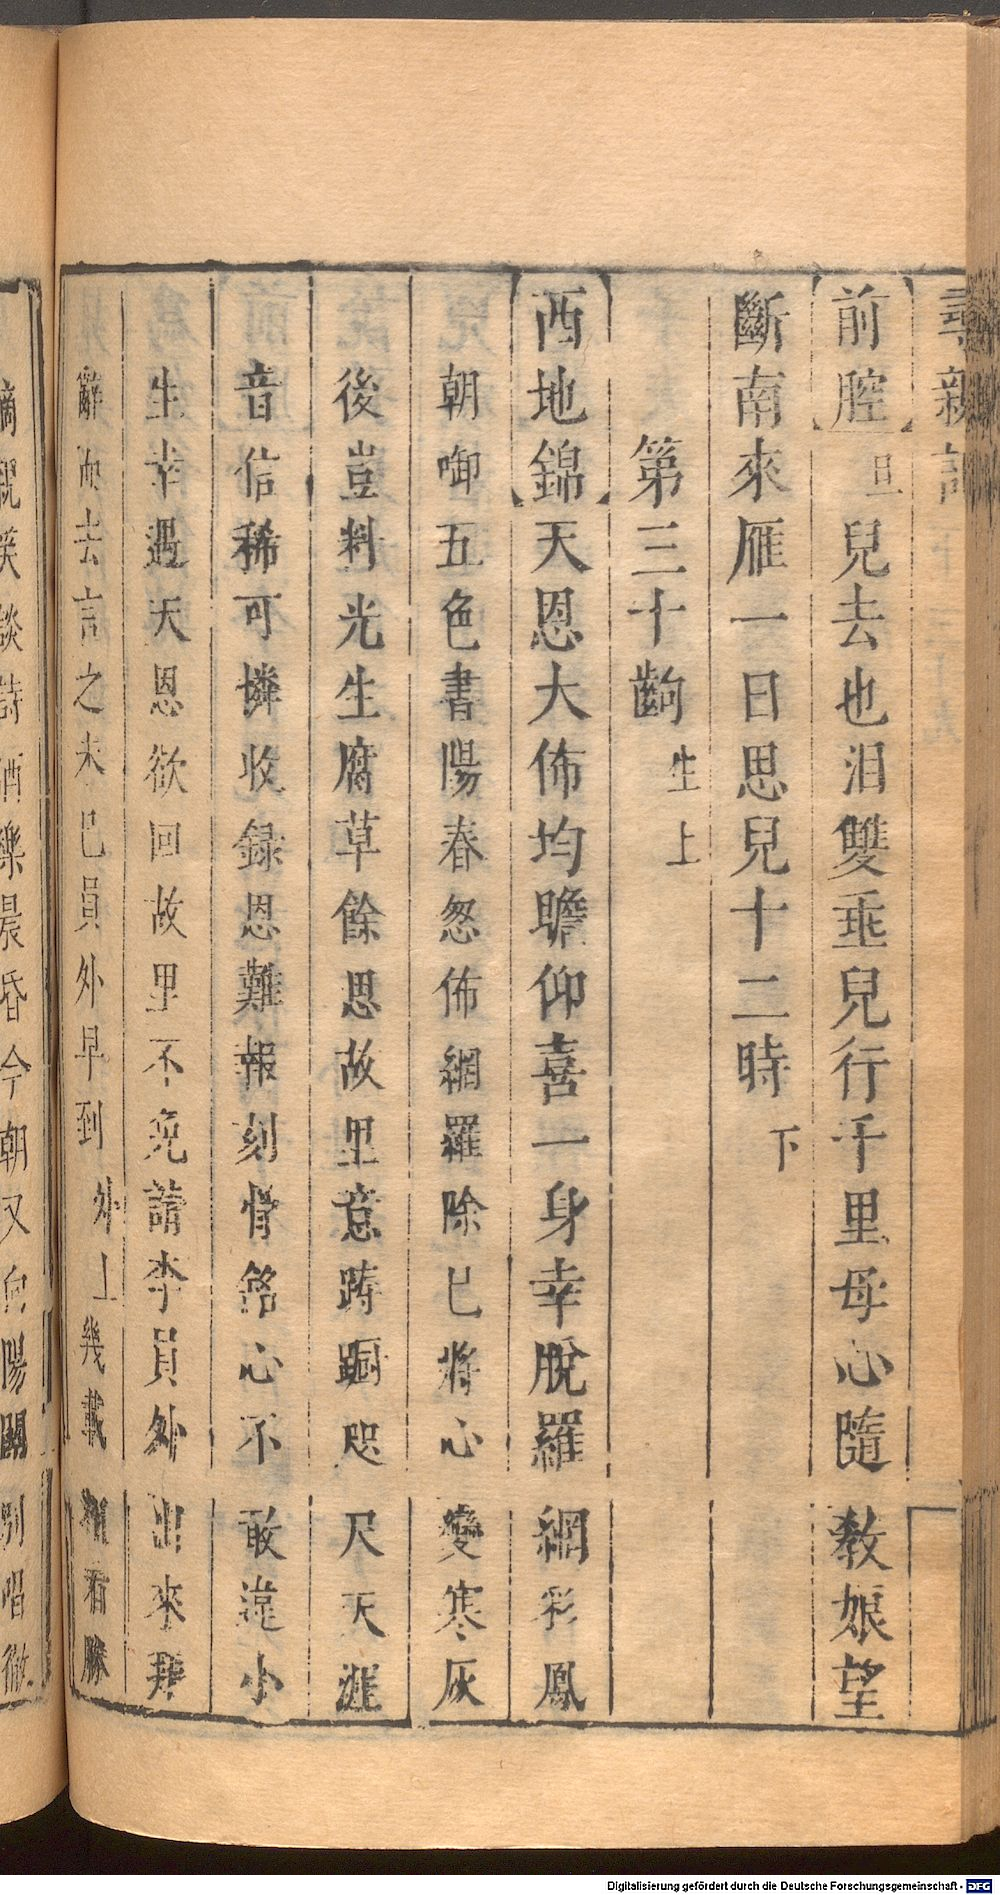 尋親記
【前腔】旦兒去也泪雙垂兒行千里母心隨教娘望
斷南來雁一日思兒十二時下
第三十齣生上
【西地錦】天恩大佈均瞻仰喜一身幸脫羅網彩鳳
朝啣五色書陽春忽佈網羅除已將心變寒灰
後豈料光生腐草餘思故里意踌蹰咫尺天涯
音信稀可憐收録恩難報刻骨銘心不敢違小
生幸遇天恩欲回故里不免請李員外出來拜
辭而去言之未已員外早到外上幾載相看勝
嫡親笑談詩酒樂晨昏今朝又向陽關別唱徹
Digitalisierung gefördert durch die Deutsche Forschungsgemeinschaft - DFG